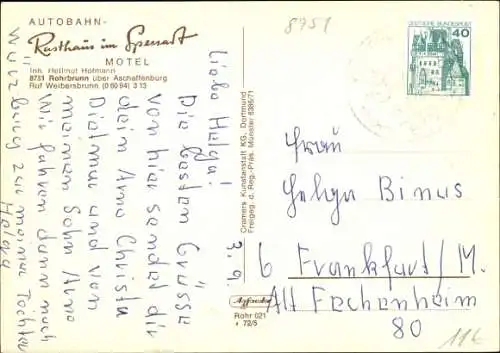 AUTOBAHN-
Rasthaus im Spessart
MOTEL
Inh. Hellmut Hofmann
8751 Rohrbrunn über Aschaffenburg
Ruf Weibersbrunn (0 60 94) 3 13
8751
DEUTSCHE BUNDESPOST
40
Liebe Helga!
Die besten Grüsse
von hier sendet dir
dein Arno Christa
Dietmar und von
meinen Sohn Arno
Wir fahren dann nach
Würzburg zu meiner Tochter
Helga
3.9.
Cramers Kunstanstalt KG, Dortmund
Freigeg. d. Reg.-Präs. Münster 6386/71
Rohr 021
r 72/5
Frau
Helga Binus
6 Frankfurt/M.
Alt Fechenheim
80